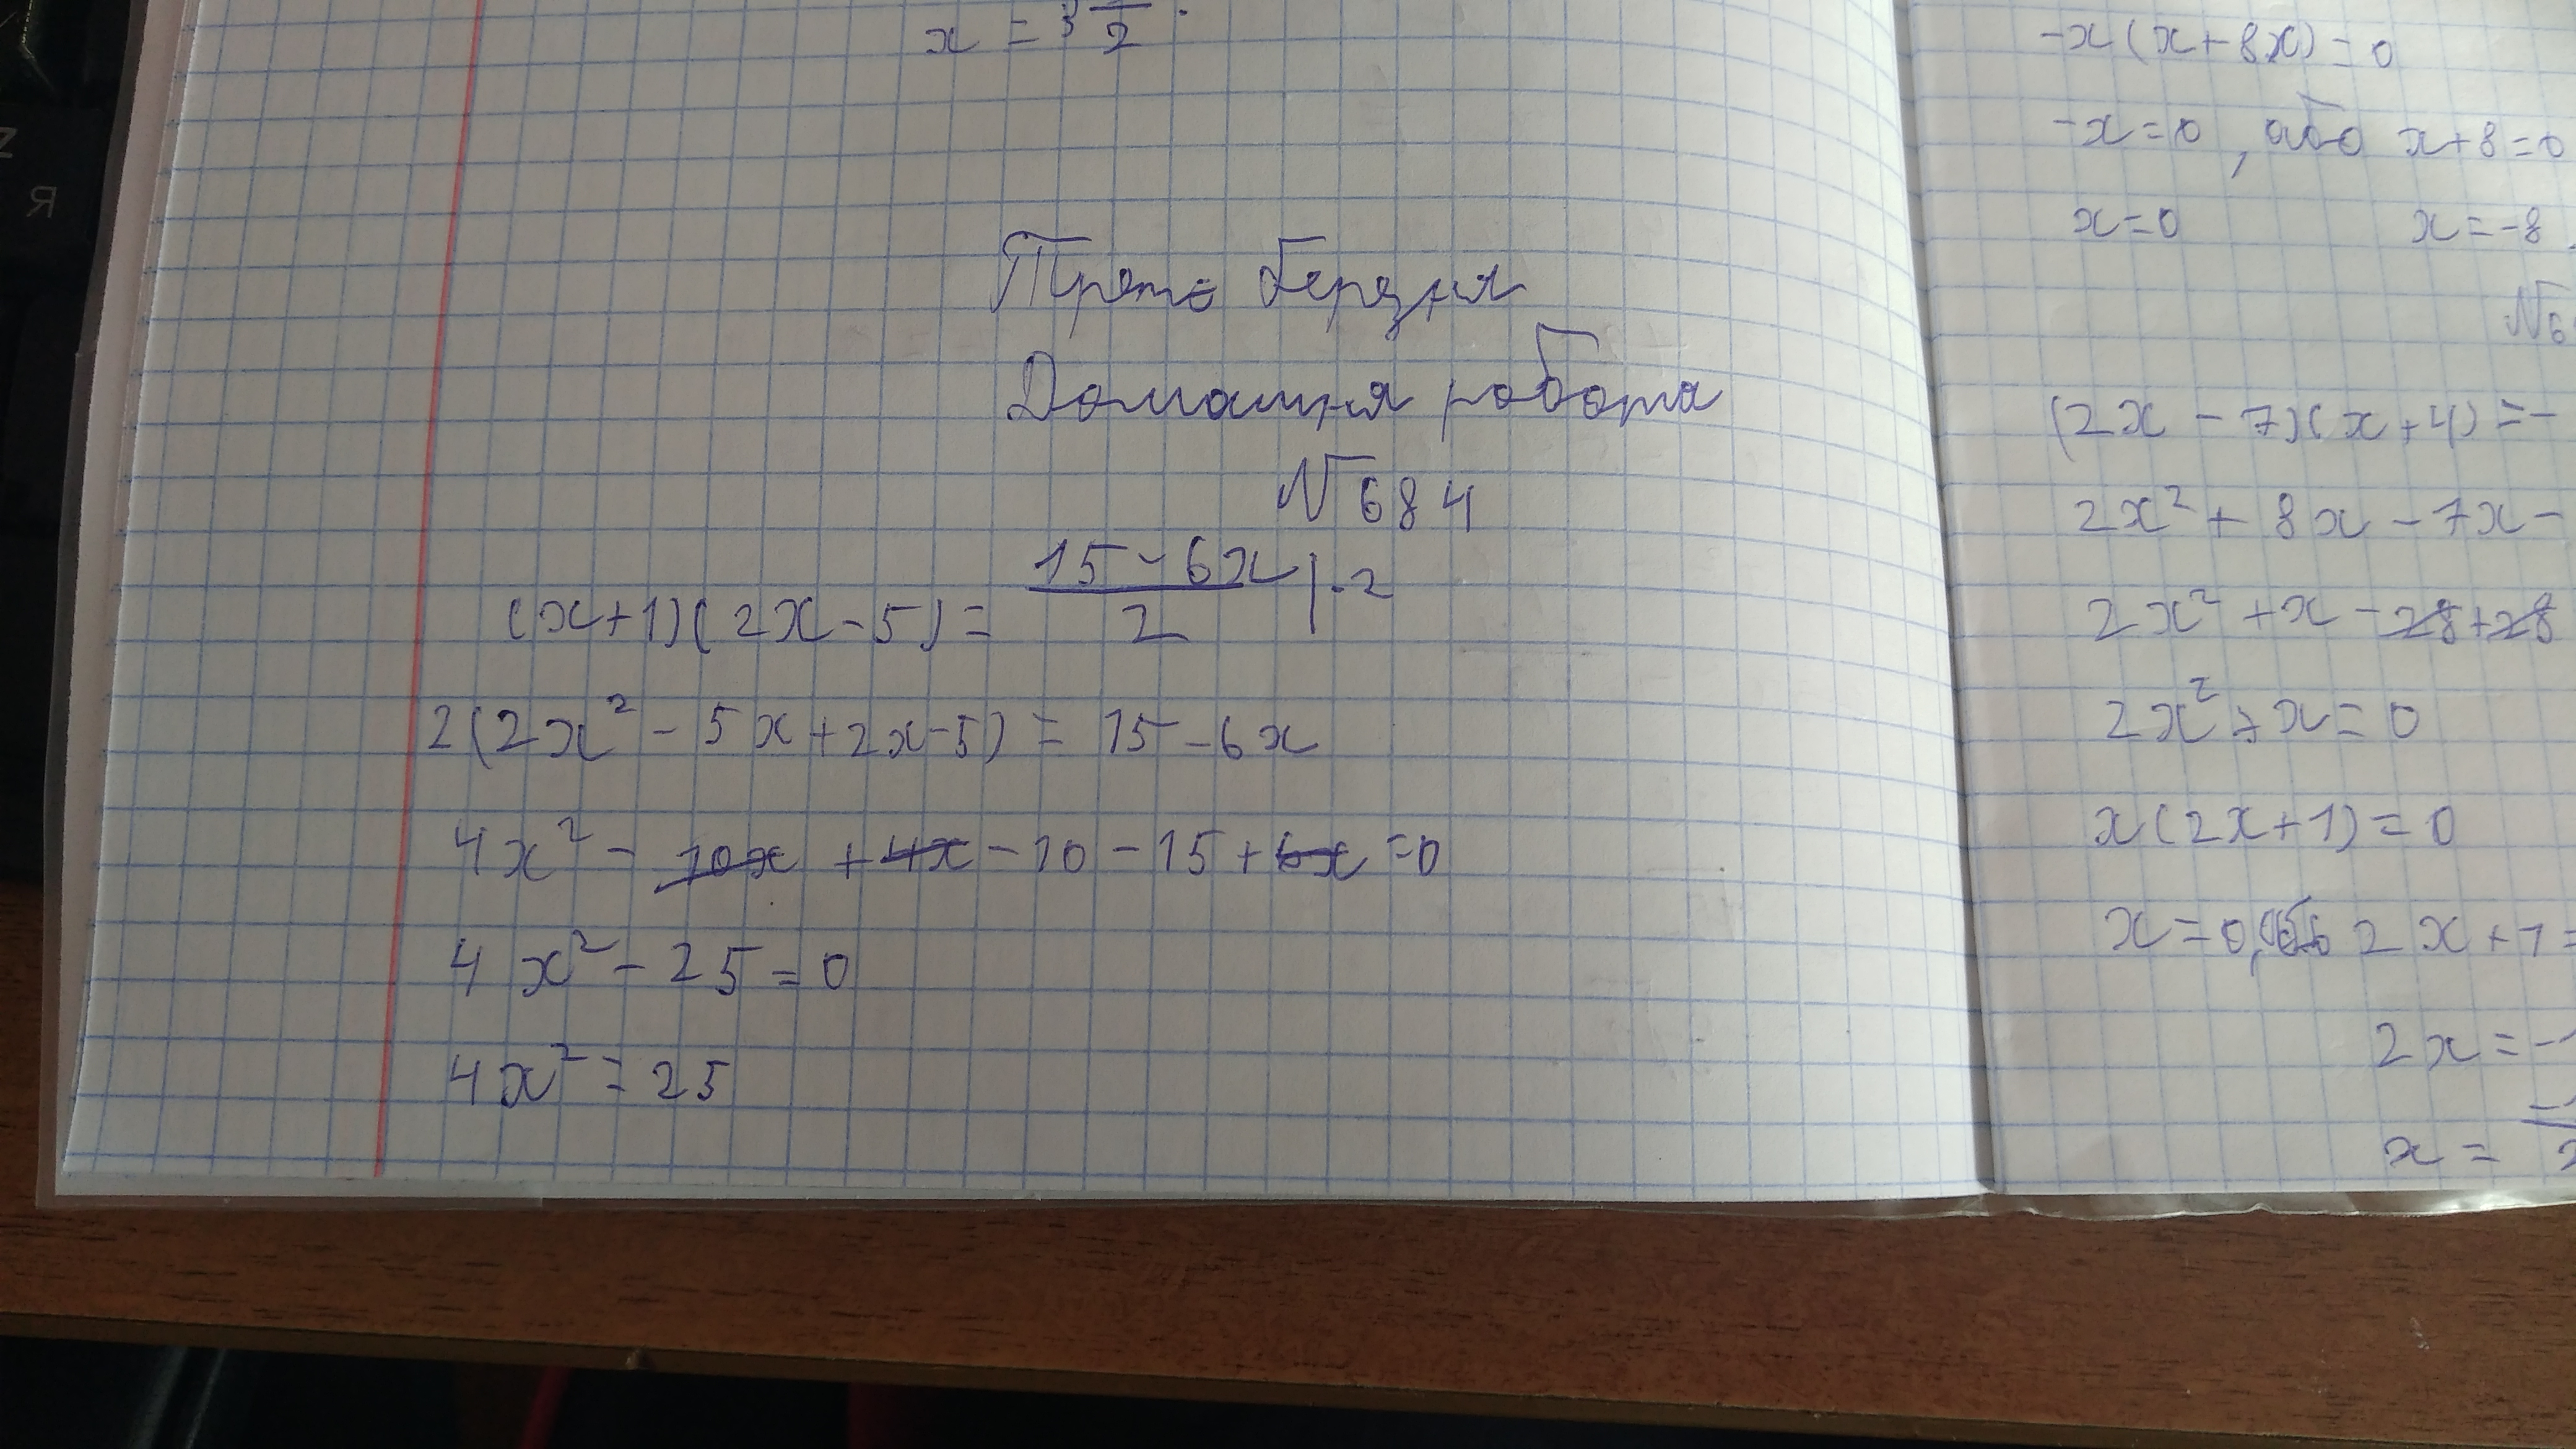 x = 3/2.
Третє березня
Домашня робота
№684
(x+1)(2x-5) = (15-6x)/2 |·2
2(2x² - 5x + 2x - 5) = 15 - 6x
4x² - 10x + 4x - 10 - 15 + 6x = 0
4x² - 25 = 0
4x² = 25
-x(x+8x) = 0
-x=0, або x+8=0
x=0 x=-8
№6
(2x - 7)(x+4) = -
2x² + 8x - 7x -
2x² + x - 28 + 28
2x² + x = 0
x(2x+1) = 0
x=0, 2x+1=
2x = -1
x =
Z
Я